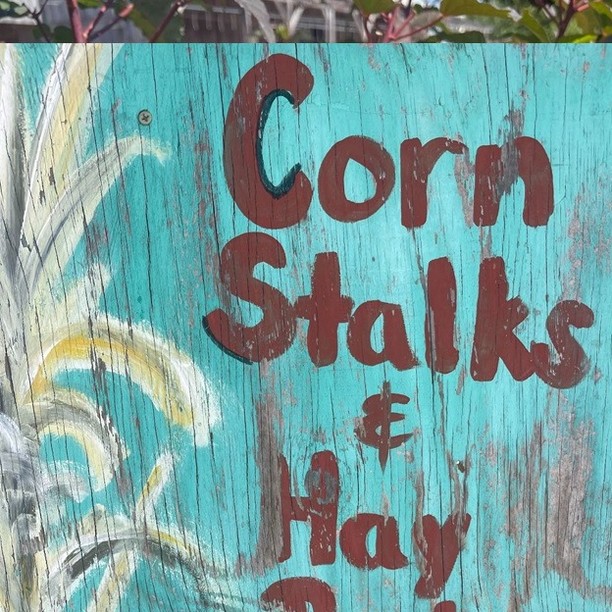 Corn
Stalks
&
Hay